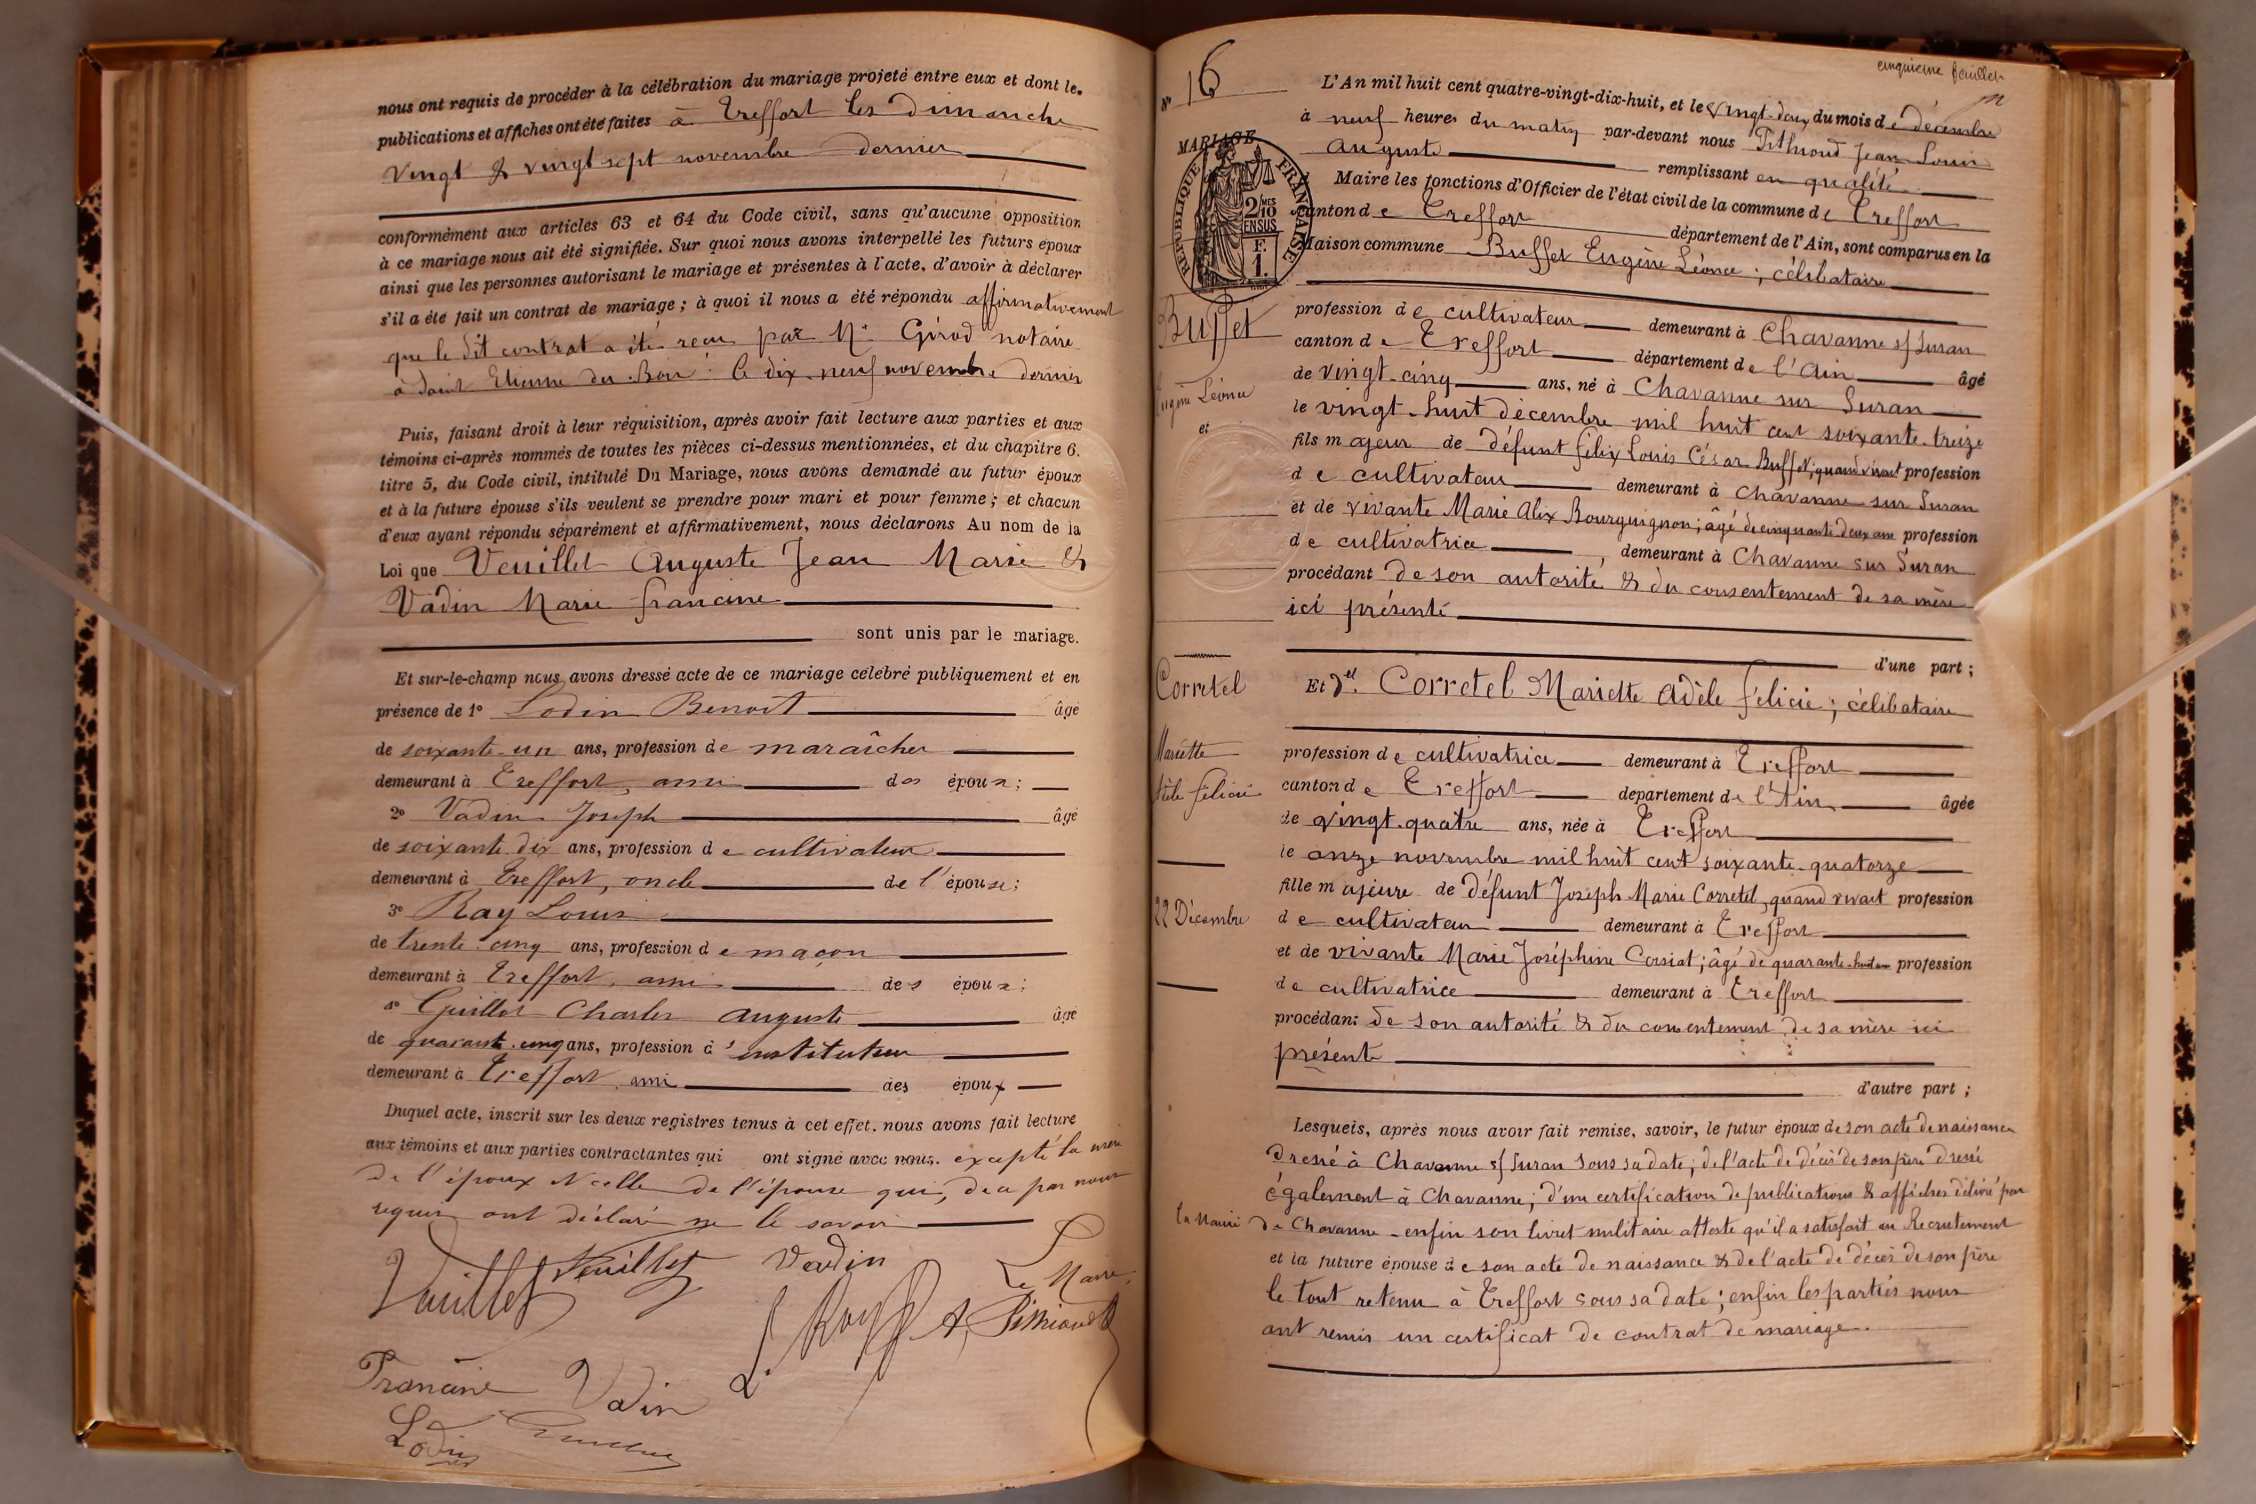 nous ont requis de procéder à la célébration du mariage projeté entre eux et dont les
publications et affiches ont été faites à Treffort les dimanche
vingt & vingt sept novembre dernier
conformément aux articles 63 et 64 du Code civil, sans qu'aucune opposition
à ce mariage nous ait été signifiée. Sur quoi nous avons interpellé les futurs époux
ainsi que les personnes autorisant le mariage et présentes à l'acte, d'avoir à déclarer
s'il a été fait un contrat de mariage ; à quoi il nous a été répondu affirmativement
que le dit contrat a été reçu par Me Girod notaire
à Saint Etienne du Bois le dix-neuf novembre dernier
Puis, faisant droit à leur réquisition, après avoir fait lecture aux parties et aux
témoins ci-après nommés de toutes les pièces ci-dessus mentionnées, et du chapitre 6.
titre 5, du Code civil, intitulé Du Mariage, nous avons demandé au futur époux
et à la future épouse s'ils veulent se prendre pour mari et pour femme ; et chacun
d'eux ayant répondu séparément et affirmativement, nous déclarons Au nom de la
Loi que Veuillet Auguste Jean Marie &
Vadin Marie francine
sont unis par le mariage.
Et sur-le-champ nous avons dressé acte de ce mariage célébré publiquement et en
présence de 1º Lodin Benoit âgé
de soixante-un ans, profession de maraîcher
demeurant à Treffort, ami des époux ;
2º Vadin Joseph âgé
de soixante dix ans, profession de cultivateur
demeurant à Treffort, oncle de l'épouse ;
3º Ray Louis
de trente-cinq ans, profession de maçon
demeurant à Treffort, ami des époux ;
4º Guillot Charles Auguste âgé
de quarante-cinq ans, profession d'instituteur
demeurant à Treffort, ami des époux
Duquel acte, inscrit sur les deux registres tenus à cet effet, nous avons fait lecture
aux témoins et aux parties contractantes qui ont signé avec nous. excepté la mère
de l'époux & celle de l'épouse qui, de ce par nous
requis ont déclaré ne le savoir
Veuillet Veuillet Vadin
Le Maire,
L. Ray A. Pithioud
Francine Vadin
Lodin
cinquième feuillet
Nº 16
MARIAGE
RÉPUBLIQUE FRANÇAISE
2/10 MES
EN SUS
F.
1.
L'An mil huit cent quatre-vingt-dix-huit, et le vingt-deux du mois de décembre
à neuf heures du matin par-devant nous Pithioud Jean Louis
Auguste remplissant en qualité
de Maire les fonctions d'Officier de l'état civil de la commune de Treffort
canton de Treffort département de l'Ain, sont comparus en la
Maison commune Buffet Eugène Léonce ; célibataire
Buffet
Eugène Léonce
et
profession de cultivateur demeurant à Chavanne s/ Suran
canton de Treffort département de l'Ain âgé
de vingt-cinq ans, né à Chavanne sur Suran
le vingt-huit décembre mil huit cent soixante-treize
fils majeur de défunt félix Louis César Buffet, quand vivait profession
de cultivateur demeurant à Chavanne sur Suran
et de vivante Marie Alix Bourguignon ; âgé de cinquante-deux ans profession
de cultivatrice, demeurant à Chavanne sur Suran
procédant de son autorité & du consentement de sa mère
ici présente
d'une part ;
Corretel
Mariette
Adèle félicie
22 Décembre
Et dlle Corretel Mariette Adèle félicie ; célibataire
profession de cultivatrice demeurant à Treffort
canton de Treffort département de l'Ain âgée
de vingt-quatre ans, née à Treffort
le onze novembre mil huit cent soixante-quatorze
fille majeure de défunt Joseph Marie Corretel, quand vivait profession
de cultivateur demeurant à Treffort
et de vivante Marie Joséphine Corsiat ; âgé de quarante-huit ans profession
de cultivatrice demeurant à Treffort
procédant de son autorité & du consentement de sa mère ici
présente
d'autre part ;
Lesquels, après nous avoir fait remise, savoir, le futur époux de son acte de naissance
dressé à Chavanne s/ Suran sous sa date ; de l'acte de décès de son père dressé
également à Chavanne ; d'un certification de publications & affiches délivré par
la Mairie de Chavanne - enfin son livret militaire atteste qu'il a satisfait au Recrutement
et la future épouse de son acte de naissance & de l'acte de décès de son père
le tout retenu à Treffort sous sa date ; enfin les parties nous
ont remis un certificat de contrat de mariage.